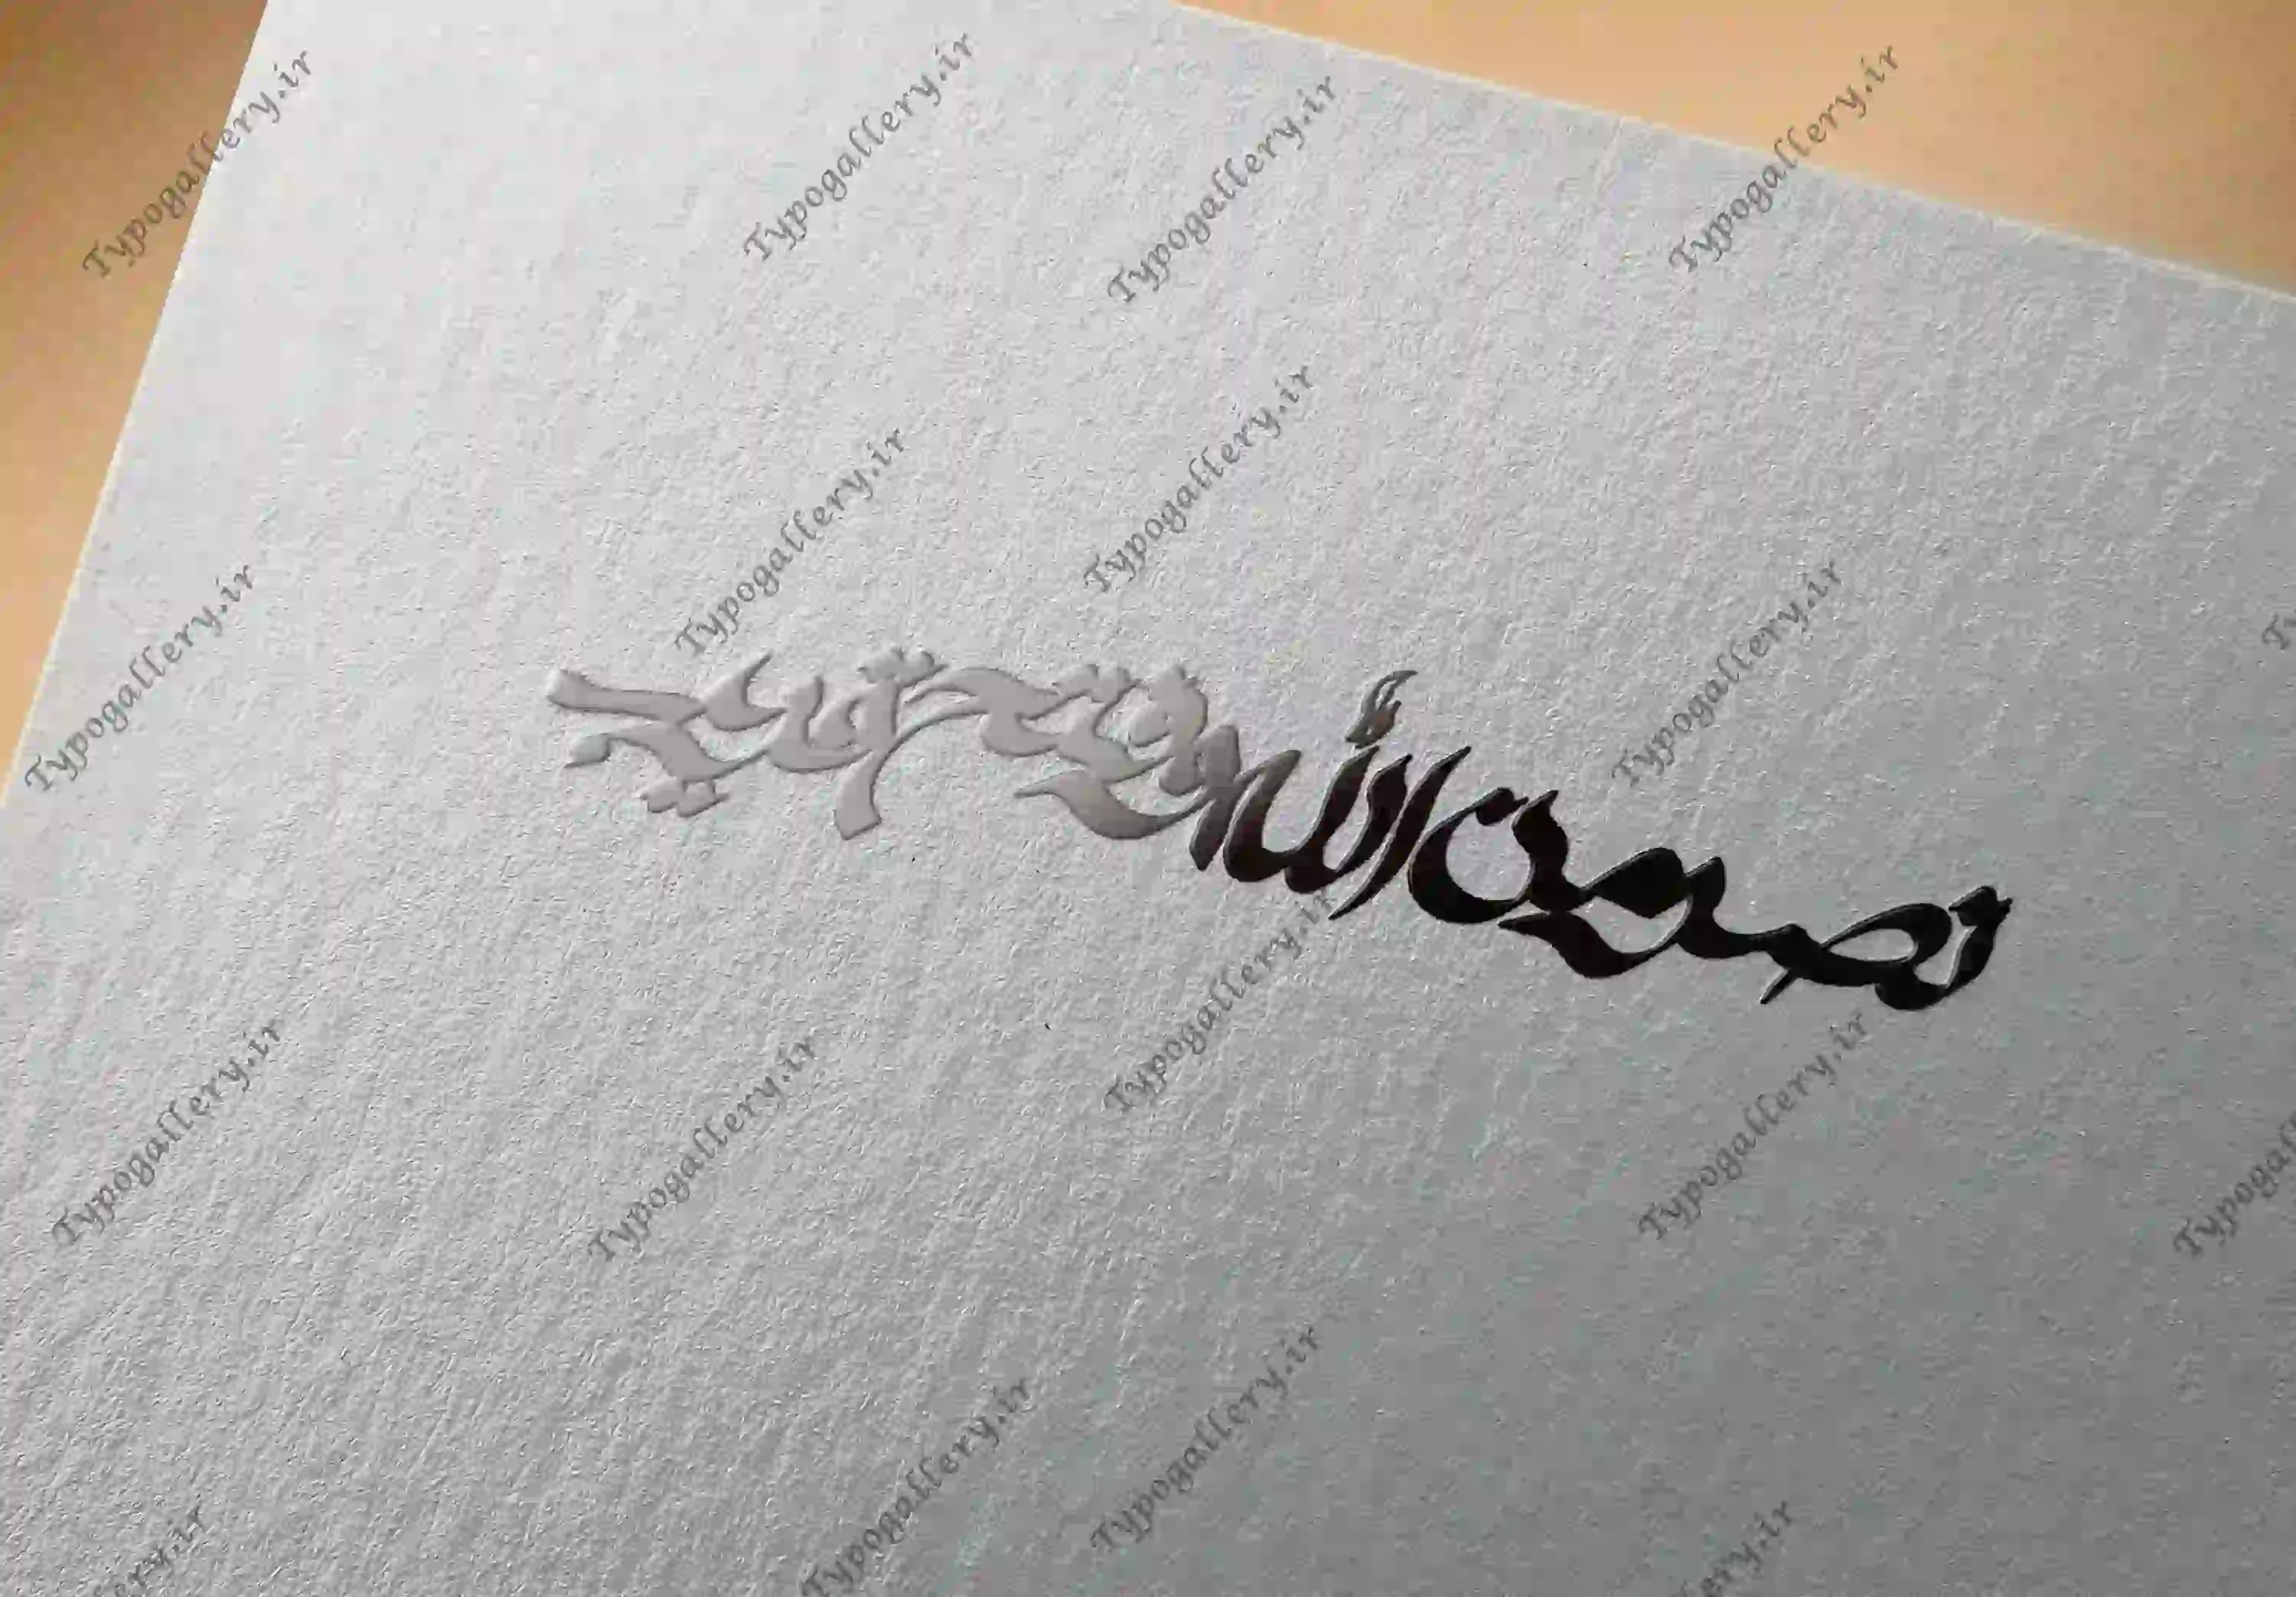 Typogallery.ir
Typogallery.ir
Typogallery.ir
Typogallery.ir
Typogallery.ir
Typogallery.ir
Typogallery.ir
Typogallery.ir
نصر من الله و فتح قریب
Typogallery.ir
Typogallery.ir
Typogallery.ir
Typogallery.ir
Typogallery.ir
Typogallery.ir